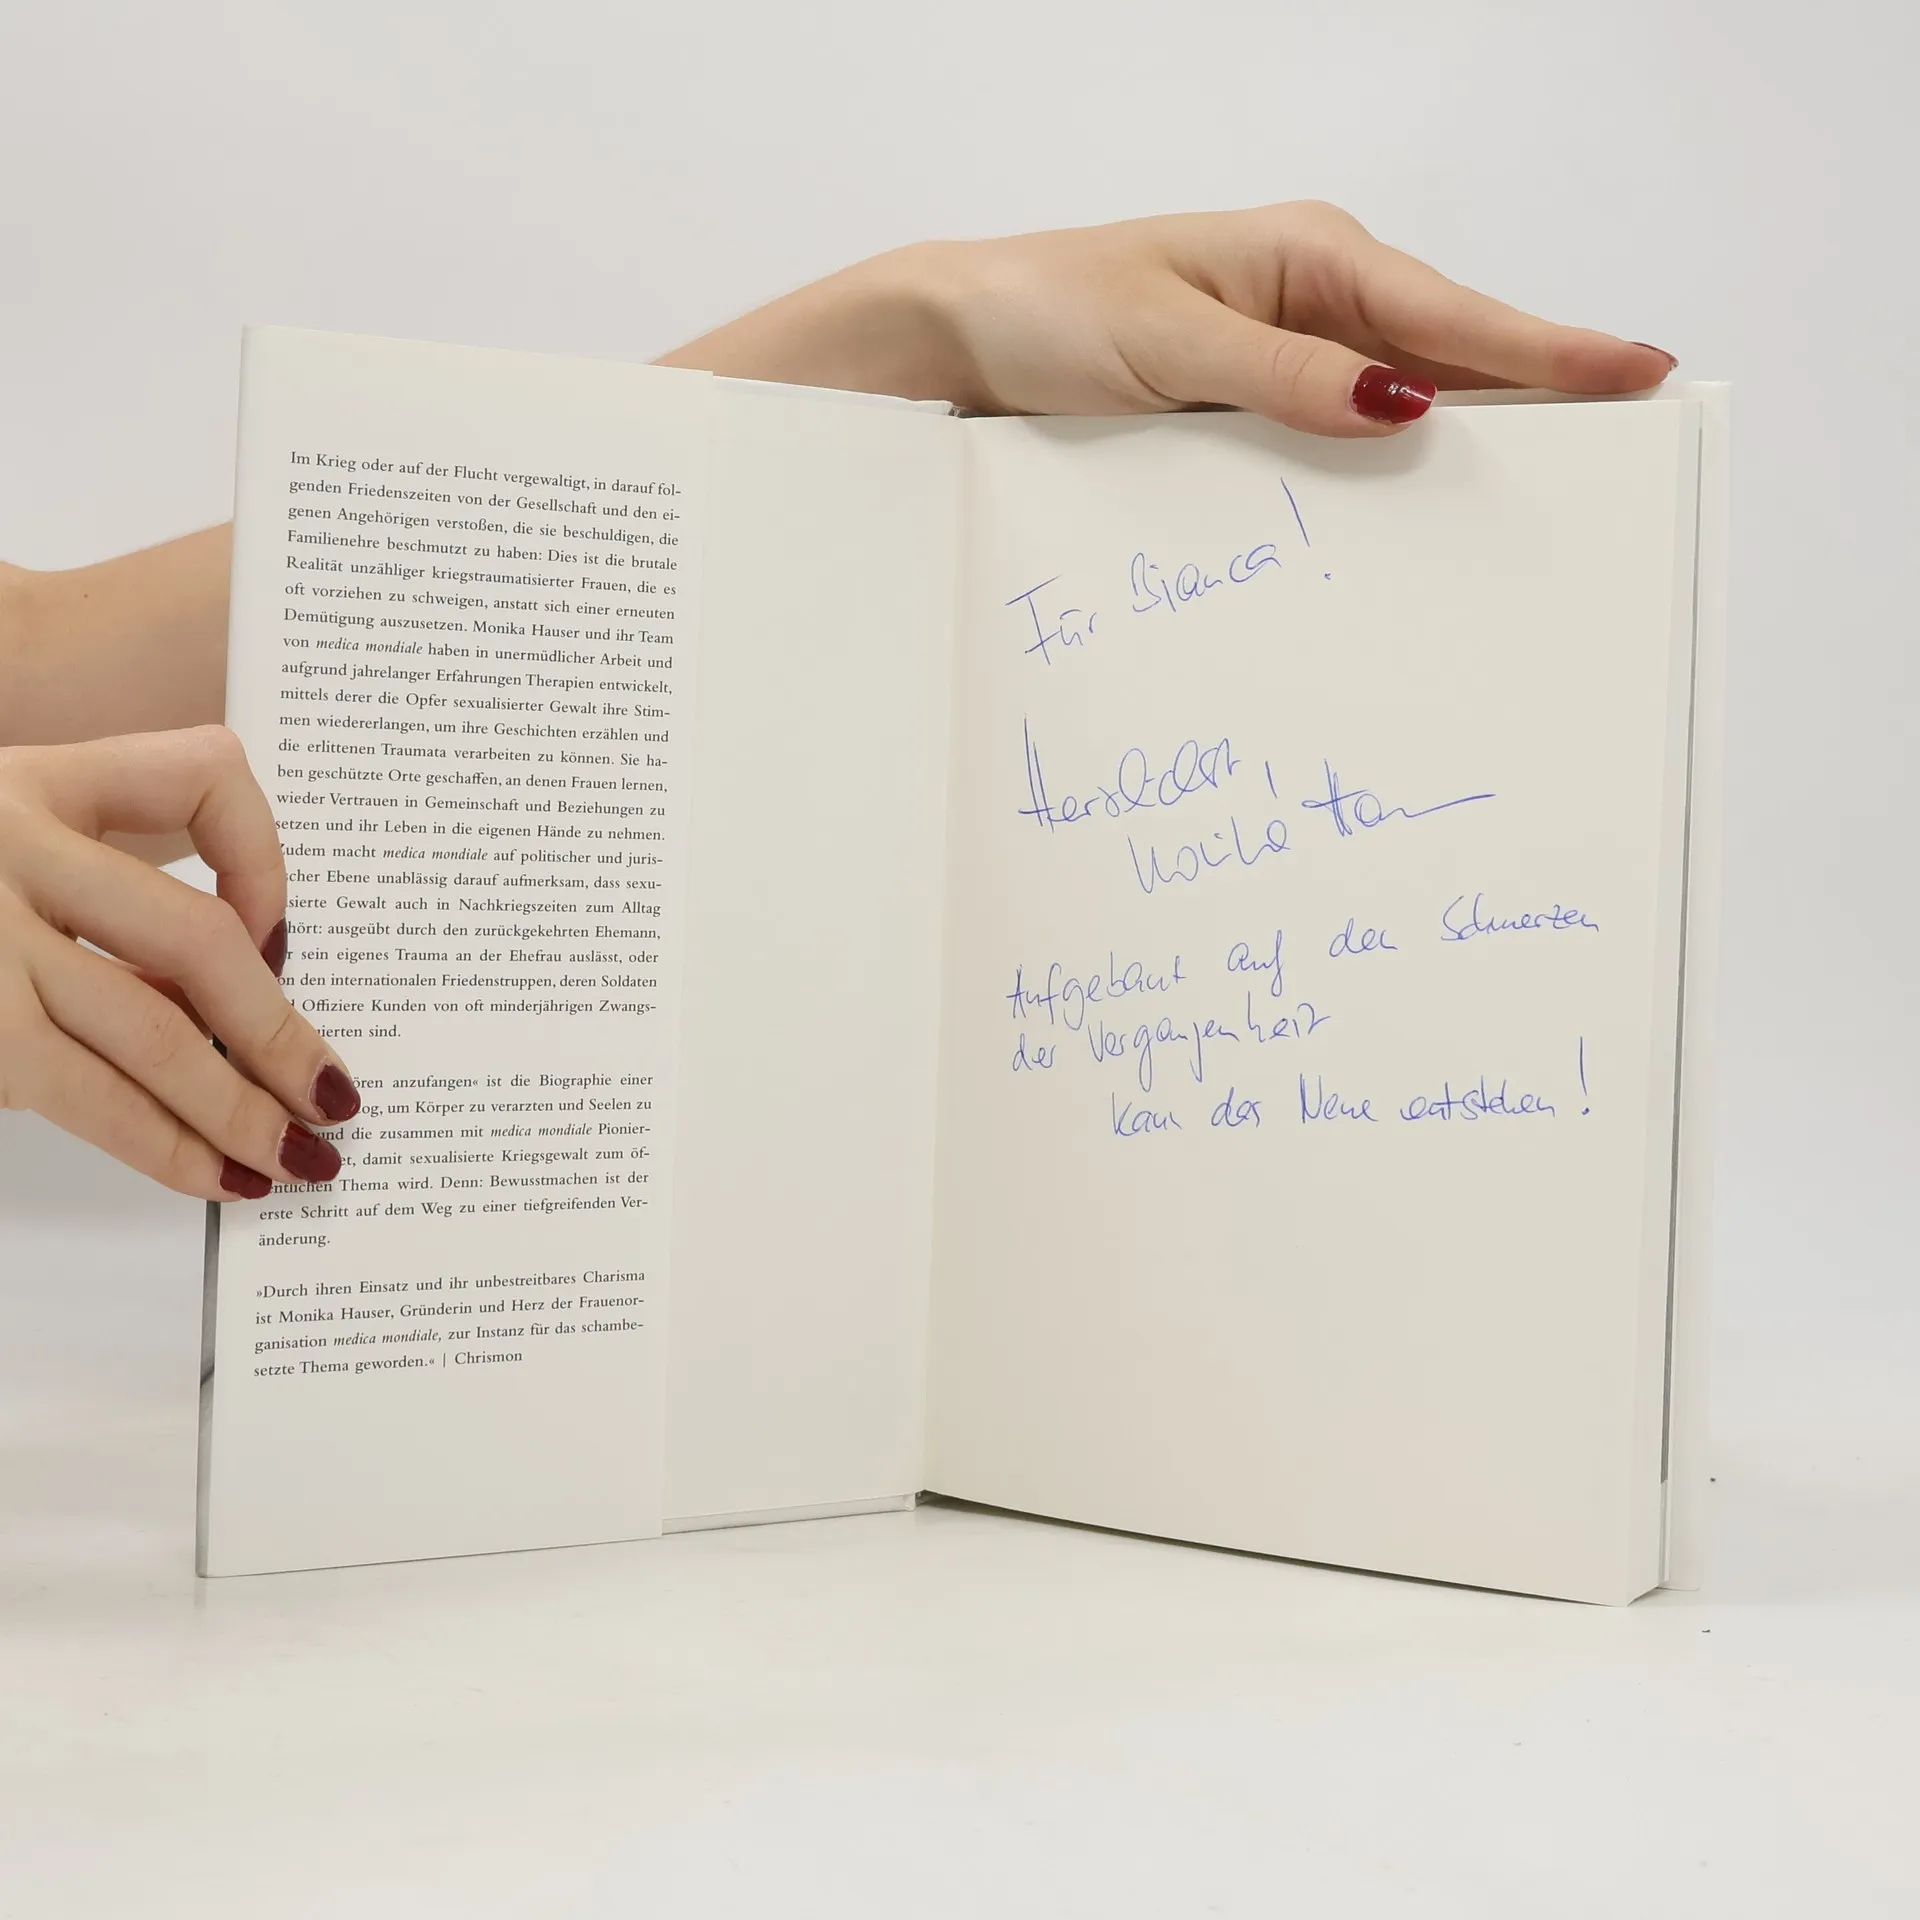 Im Krieg oder auf der Flucht vergewaltigt, in darauf fol-
genden Friedenszeiten von der Gesellschaft und den ei-
genen Angehörigen verstoßen, die sie beschuldigen, die
Familienehre beschmutzt zu haben: Dies ist die brutale
Realität unzähliger kriegstraumatisierter Frauen, die es
oft vorziehen zu schweigen, anstatt sich einer erneuten
Demütigung auszusetzen. Monika Hauser und ihr Team
von medica mondiale haben in unermüdlicher Arbeit und
aufgrund jahrelanger Erfahrungen Therapien entwickelt,
mittels derer die Opfer sexualisierter Gewalt ihre Stim-
men wiedererlangen, um ihre Geschichten erzählen und
die erlittenen Traumata verarbeiten zu können. Sie ha-
ben geschützte Orte geschaffen, an denen Frauen lernen,
wieder Vertrauen in Gemeinschaft und Beziehungen zu
setzen und ihr Leben in die eigenen Hände zu nehmen.
Zudem macht medica mondiale auf politischer und juris-
scher Ebene unablässig darauf aufmerksam, dass sexu-
sierte Gewalt auch in Nachkriegszeiten zum Alltag
hört: ausgeübt durch den zurückgekehrten Ehemann,
r sein eigenes Trauma an der Ehefrau auslässt, oder
on den internationalen Friedenstruppen, deren Soldaten
d Offiziere Kunden von oft minderjährigen Zwangs-
uierten sind.
ören anzufangen« ist die Biographie einer
og, um Körper zu verarzten und Seelen zu
und die zusammen mit medica mondiale Pionier-
et, damit sexualisierte Kriegsgewalt zum öf-
entlichen Thema wird. Denn: Bewusstmachen ist der
erste Schritt auf dem Weg zu einer tiefgreifenden Ver-
änderung.
»Durch ihren Einsatz und ihr unbestreitbares Charisma
ist Monika Hauser, Gründerin und Herz der Frauenor-
ganisation medica mondiale, zur Instanz für das schambe-
setzte Thema geworden.« | Chrismon
Für Bianca!
Herzlichst,
Monika Hauser
Aufgebaut auf den Schmerzen
der Vergangenheit
kann das Neue entstehen!